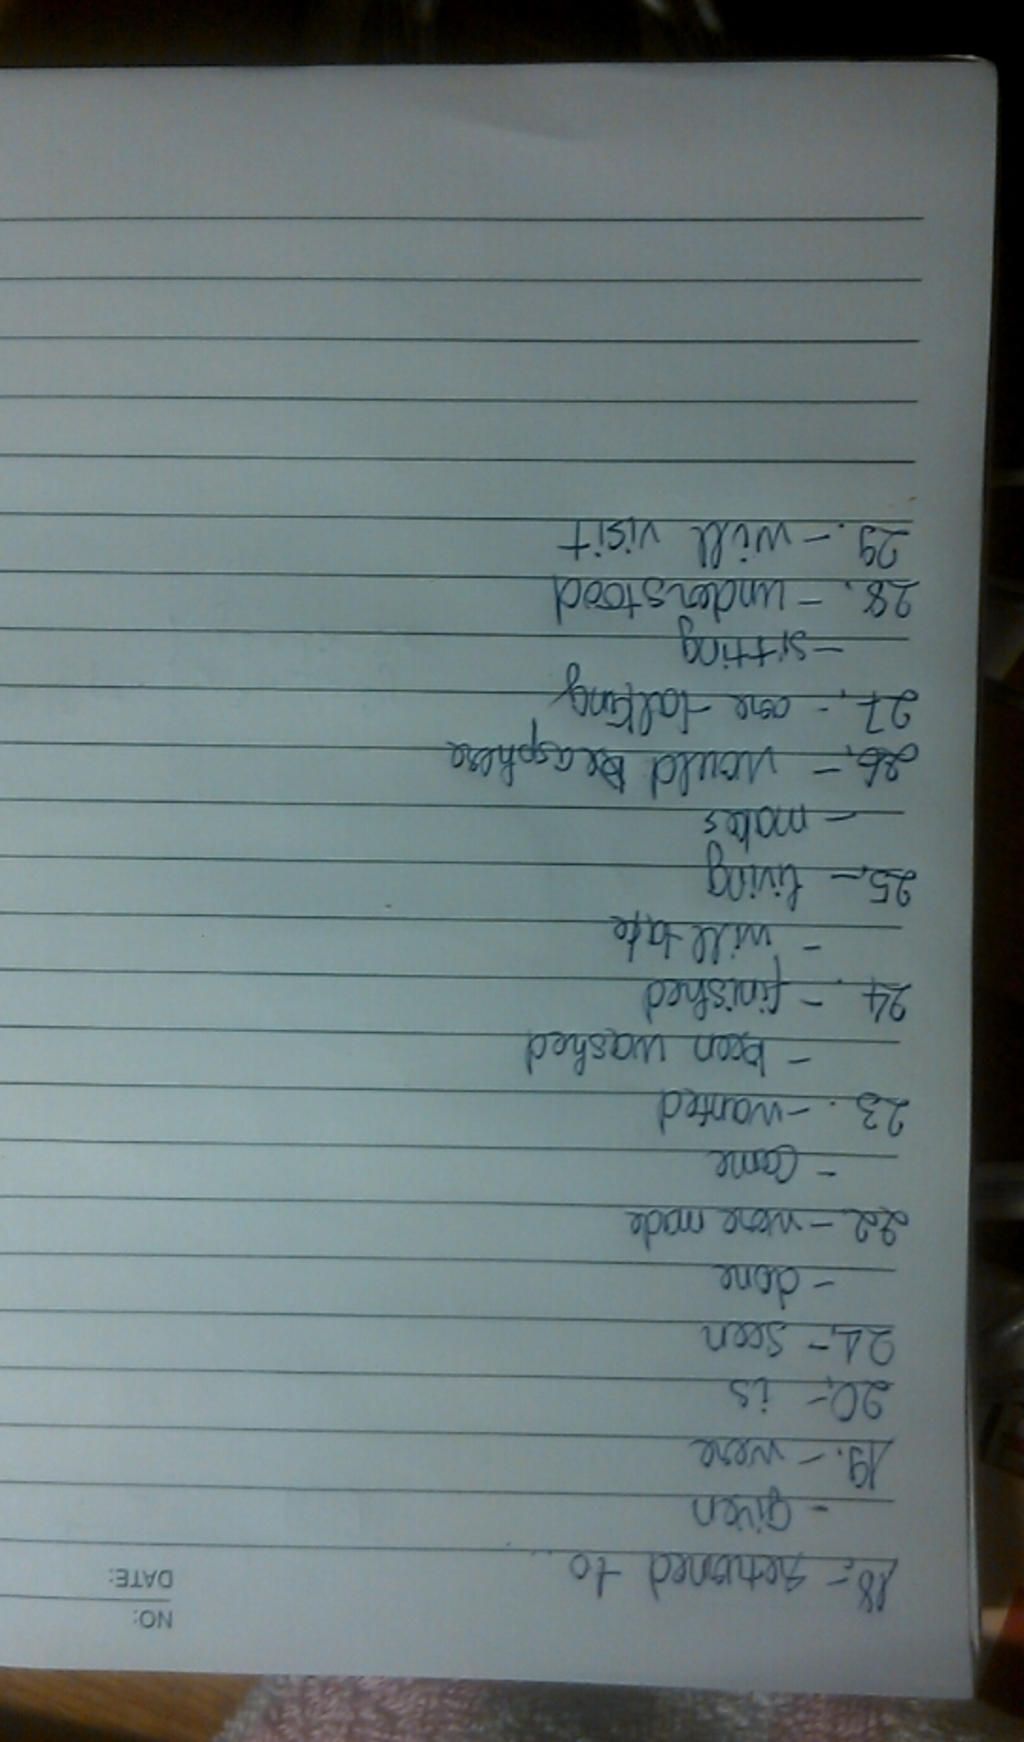 NO:
DATE:
18.- returned to ...
- given
19. - were
20.- is
21.- seen
- done
22.- were made
- Come
23. - wanted
- been washed
24. - finished
- will take
25.- living
- makes
26.- would be
27. - are talking
- sitting
28. - understood
29. - will visit